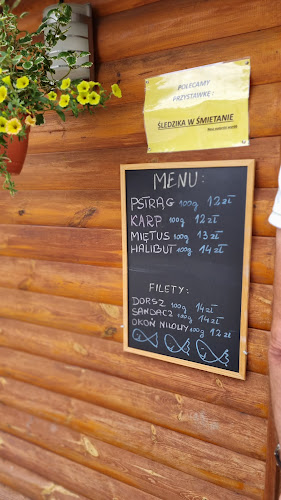 POLECAMY
PRZYSTAWKĘ:
ŚLEDZIKA W ŚMIETANIE
MENU:
PSTRĄG 100g 12 zł
KARP 100g 12 zł
MIĘTUS 100g 13 zł
HALIBUT 100g 14 zł
FILETY:
DORSZ 100g 14 zł
SANDACZ 100g 14 zł
OKOŃ NILOWY 100g 12 zł